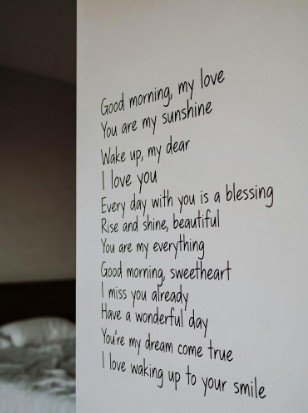 Good morning, my love
You are my sunshine
Wake up, my dear
I love you
Every day with you is a blessing
Rise and shine, beautiful
You are my everything
Good morning, sweetheart
I miss you already
Have a wonderful day
You're my dream come true
I love waking up to your smile